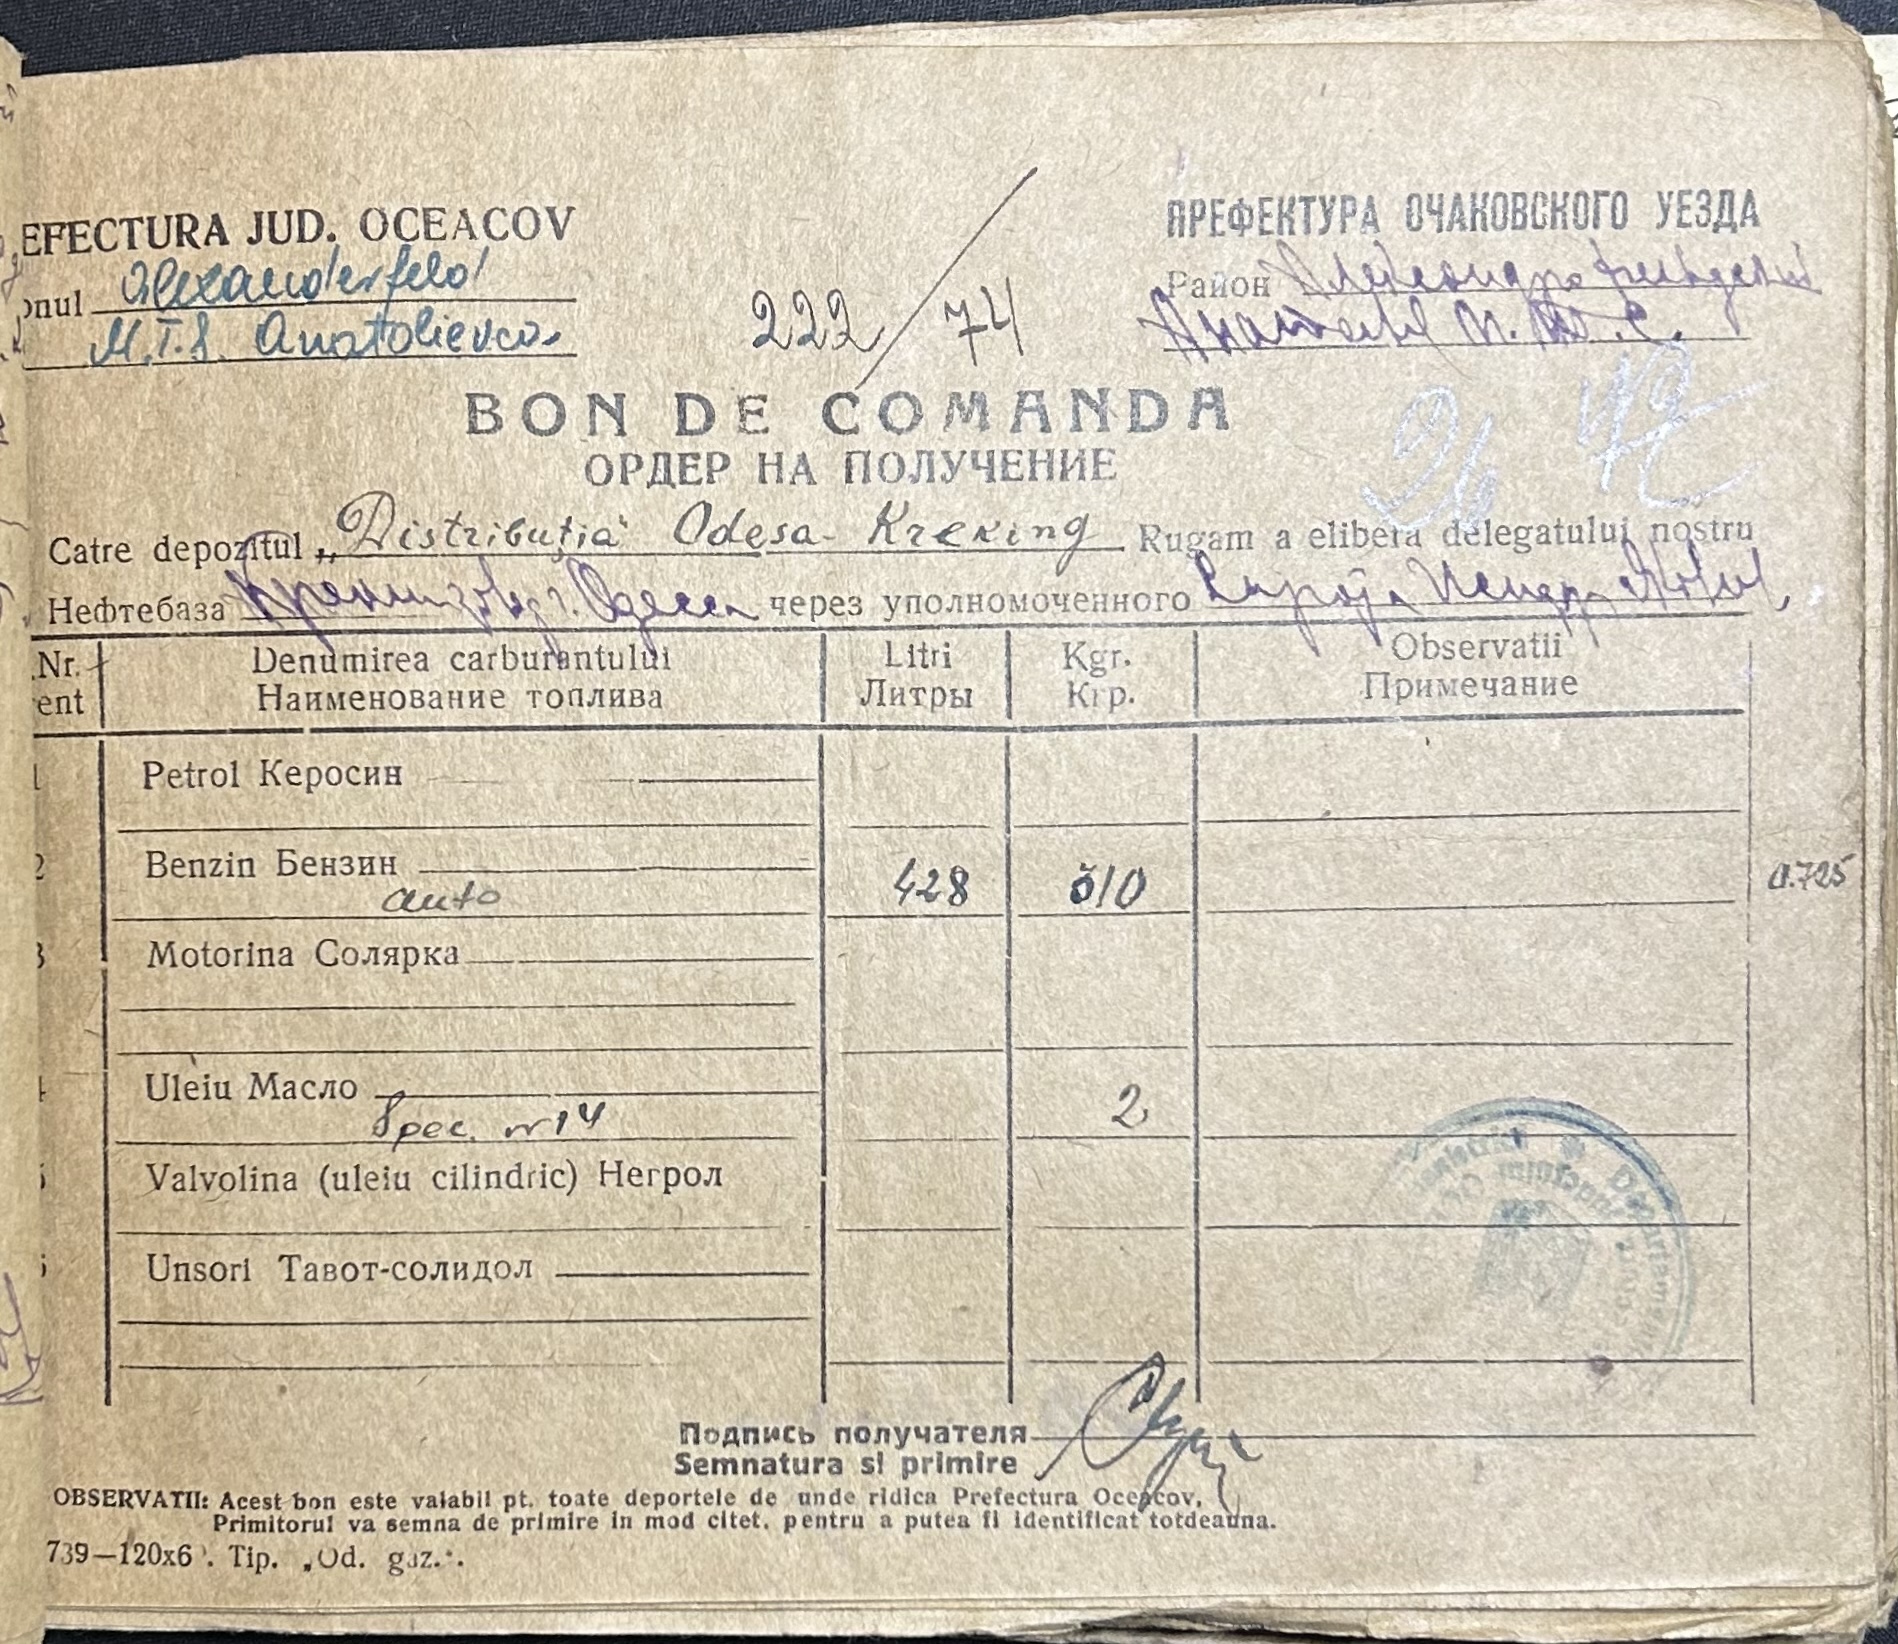 EFECTURA JUD. OCEACOV
ПРЕФЕКТУРА ОЧАКОВСКОГО УЕЗДА
onul Alexanderfeld
Район
M.T.S. Anatolievca
222/74
BON DE COMANDA
ОРДЕР НА ПОЛУЧЕНИЕ
26
Catre depozitul „Distribuția" Odesa - Kreking Rugam a elibera delegatului nostru
Нефтебаза г. Одесса через уполномоченного
.Nr. Denumirea carburantului Litri Kgr. Observatii
rent Наименование топлива Литры Кгр. Примечание
1 Petrol Керосин
2 Benzin Бензин 428 310 0.725
auto
3 Motorina Солярка
4 Uleiu Масло 2
Spec. nr 14
5 Valvolina (uleiu cilindric) Негрол
Unsori Тавот-солидол
Подпись получателя
Semnatura si primire
OBSERVATII: Acest bon este valabil pt. toate deportele de unde ridica Prefectura Oceacov,
Primitorul va semna de primire in mod citet, pentru a putea fi identificat totdeauna.
739—120x6 . Tip. „Od. gaz.".